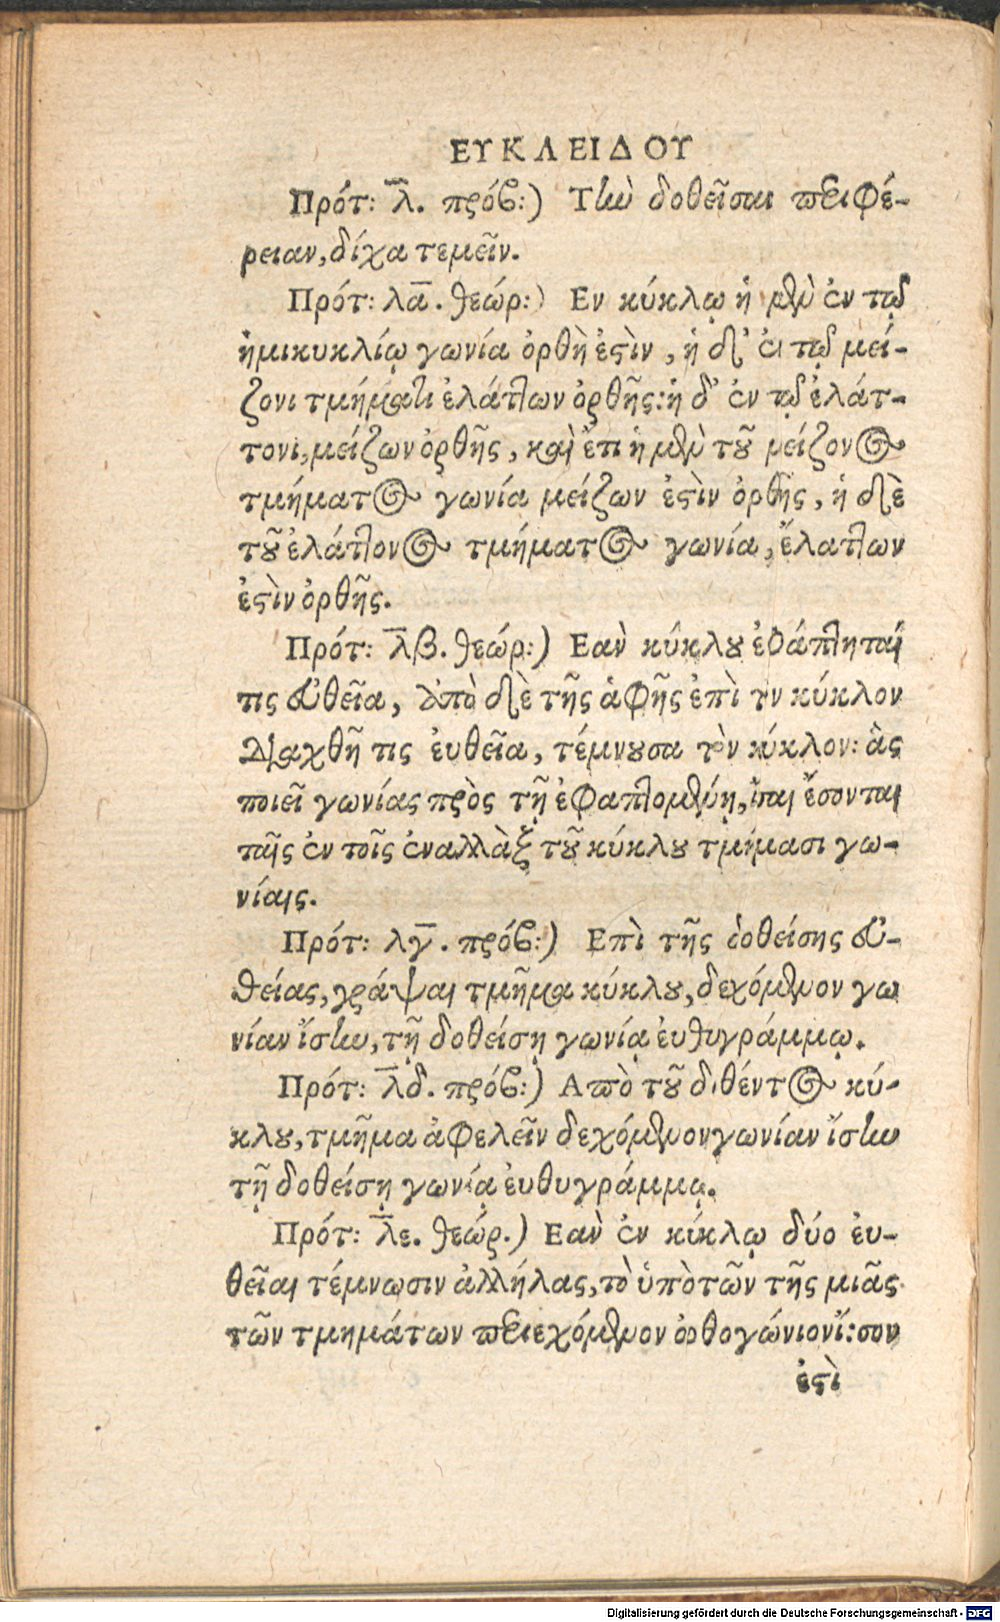 ΕΥΚΛΕΙΔΟΥ
Πρότ: λ̅. πρόβ:) Τὴν δοθεῖσαι περιφέ-
ρειαν, δίχα τεμεῖν.
Πρότ: λα̅. θεώρ:) Εν κύκλῳ ἡ μὲν ἐν τῷ
ἡμικυκλίῳ γωνία ὀρθὴ ἐστὶν, ἡ δ' ἐν τῷ μεί-
ζονι τμήματι ἐλάττων ὀρθῆς: ἡ δ' ἐν τῷ ἐλάτ-
τονι, μείζων ὀρθῆς, καὶ ἔτι ἡ μὲν τοῦ μείζονος
τμήματος γωνία μείζων ἐστὶν ὀρθῆς, ἡ δὲ
τοῦ ἐλάττονος τμήματος γωνία, ἔλαττων
ἐστὶν ὀρθῆς.
Πρότ: λ̅β. θεώρ:) Εαν̀ κύκλου ἐφάπτηταί
τις εὐθεῖα, ἀπὸ δὲ τῆς ἁφῆς ἐπὶ τὸν κύκλον
διαχθῆ τις ἐυθεῖα, τέμνουσα τὸν κύκλον: ἃς
ποιεῖ γωνίας πρὸς τῇ ἐφαπτομένῃ, ἴσαι ἔσονται
ταῖς ἐν τοῖς ἐναλλὰξ τοῦ κύκλου τμήμασι γω-
νίαις.
Πρότ: λγ̅. πρόβ:) Επὶ τῆς δοθείσης εὐ-
θείας, γράψαι τμῆμα κύκλου, δεχόμενον γω
νίαν ἴσην, τῇ δοθείσῃ γωνίᾳ ἐυθυγράμμῳ.
Πρότ: λ̅δ. πρόβ:) Απὸ τοῦ δοθέντος κύ-
κλου, τμῆμα ἀφελεῖν δεχόμενον γωνίαν ἴσην
τῇ δοθείσῃ γωνίᾳ ἐυθυγράμμῳ.
Πρότ: λ̅ε. θεώρ.) Εαν̀ ἐν κύκλῳ δύο ἐυ-
θεῖαι τέμνωσιν ἀλλήλας, τὸ ὑπὸ τῶν τῆς μιᾶς
τῶν τμημάτων περιεχόμενον ὀρθογώνιον ἴσον
ἐστὶ
Digitalisierung gefördert durch die Deutsche Forschungsgemeinschaft - DFG